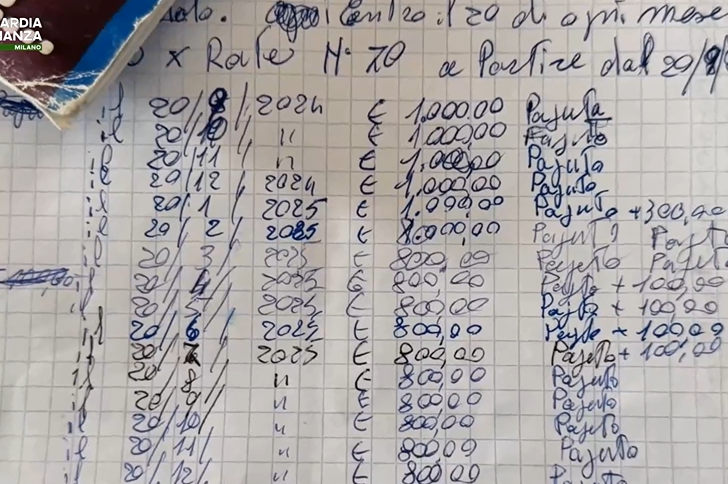 ARDIA
ANZA
MILANO
Entro il 20 di ogni mese
x Rate N° 20 a Partire dal 20/9/
il 20/9/2024 € 1.000,00 Pagata
il 20/10/ " € 1.000,00 Pagato
il 20/11/ " € 1.000,00 Pagato
il 20/12/2024 € 1.000,00 Pagato
il 20/1/2025 € 1.000,00 Pagato +300,00
il 20/2/2025 € 800,00 Pagato
il 20/3/2025 € 800,00 Pagato
il 20/4/2025 € 800,00 Pagato + 100,00
il 20/5/2025 € 800,00 Pagato + 100,00
il 20/6/2025 € 800,00 Pagato + 100,00
il 20/7/2025 € 800,00 Pagato + 100,00
il 20/8/ " € 800,00 Pagato
il 20/9/ " € 800,00 Pagato
il 20/10/ " € 800,00 Pagato
il 20/11/ " € 800,00 Pagato
il 20/12/ " € 800,00